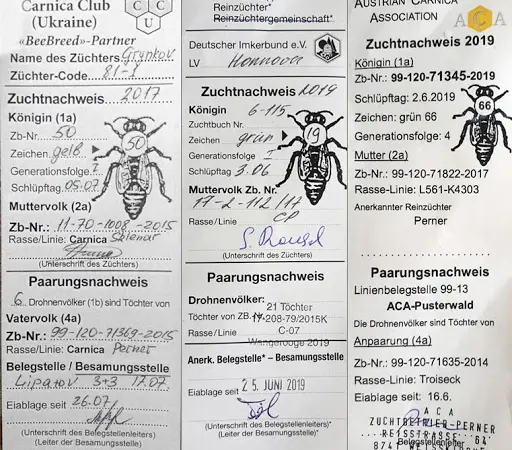 Carnica Club
(Ukraine)
«BeeBreed»-Partner
C C
U
Name des Züchters Grunkov
Züchter-Code 81-1
Zuchtnachweis 2017
Königin (1a)
Zb-Nr.: 50
Zeichen: gelb
50
Generationsfolge: ?
Schlüpftag: 05.07
Muttervolk (2a)
Zb-Nr.: 11-70-1008-2015
Rasse/Linie: Carnica Sklenar
(Unterschrift des Züchters)
Paarungsnachweis
6 Drohnenvölker (1b) sind Töchter von
Vatervolk (4a)
Zb-Nr.: 99-120-71369-2015
Rasse/Linie: Carnica Perner
Belegstelle / Besamungsstelle
Lipatov 3+3 17.07.
Eiablage seit 26.07.
(Unterschrift des Belegstellenleiters)
(Leiter der Besamungsstelle)
Reinzüchter*
Reinzüchtergemeinschaft*
Deutscher Imkerbund e.V.
LV Hannover
Zuchtnachweis 2019
Königin 6-115
Zuchtbuch Nr.
Zeichen grün
19
Generationsfolge I
Schlüpftag 3.06
Muttervolk Zb. Nr.
17-2-112/17
Rasse/Linie CP
(Unterschrift des Züchters)
Paarungsnachweis
Drohnenvölker:
21 Töchter
Töchter von ZB.Nr. 17-208-79/2015K
Rasse/Linie C-07
Wangerooge 2019
Anerk. Belegstelle* – Besamungsstelle
Eiablage seit 25. JUNI 2019
(Unterschrift des Belegstellenleiters)*
(Leiter der Besamungsstelle)*
AUSTRIAN CARNICA
ASSOCIATION
ACA
Zuchtnachweis 2019
Königin (1a)
Zb-Nr.: 99-120-71345-2019
Schlüpftag: 2.6.2019
Zeichen: grün 66
66
Generationsfolge: 4
Mutter (2a)
Zb-Nr.: 99-120-71822-2017
Rasse-Linie: L561-K4303
Anerkannter Reinzüchter
Perner
Paarungsnachweis
Linienbelegstelle 99-13
ACA-Pusterwald
Die Drohnenvölker sind Töchter von
Anpaarung (4a)
Zb-Nr.: 99-120-71635-2014
Rasse-Linie: Troiseck
Eiablage seit: 16.6.
A C A
ZUCHTBETRIEB-PERNER
REISSTRASSE 64
Belegstellenleiter